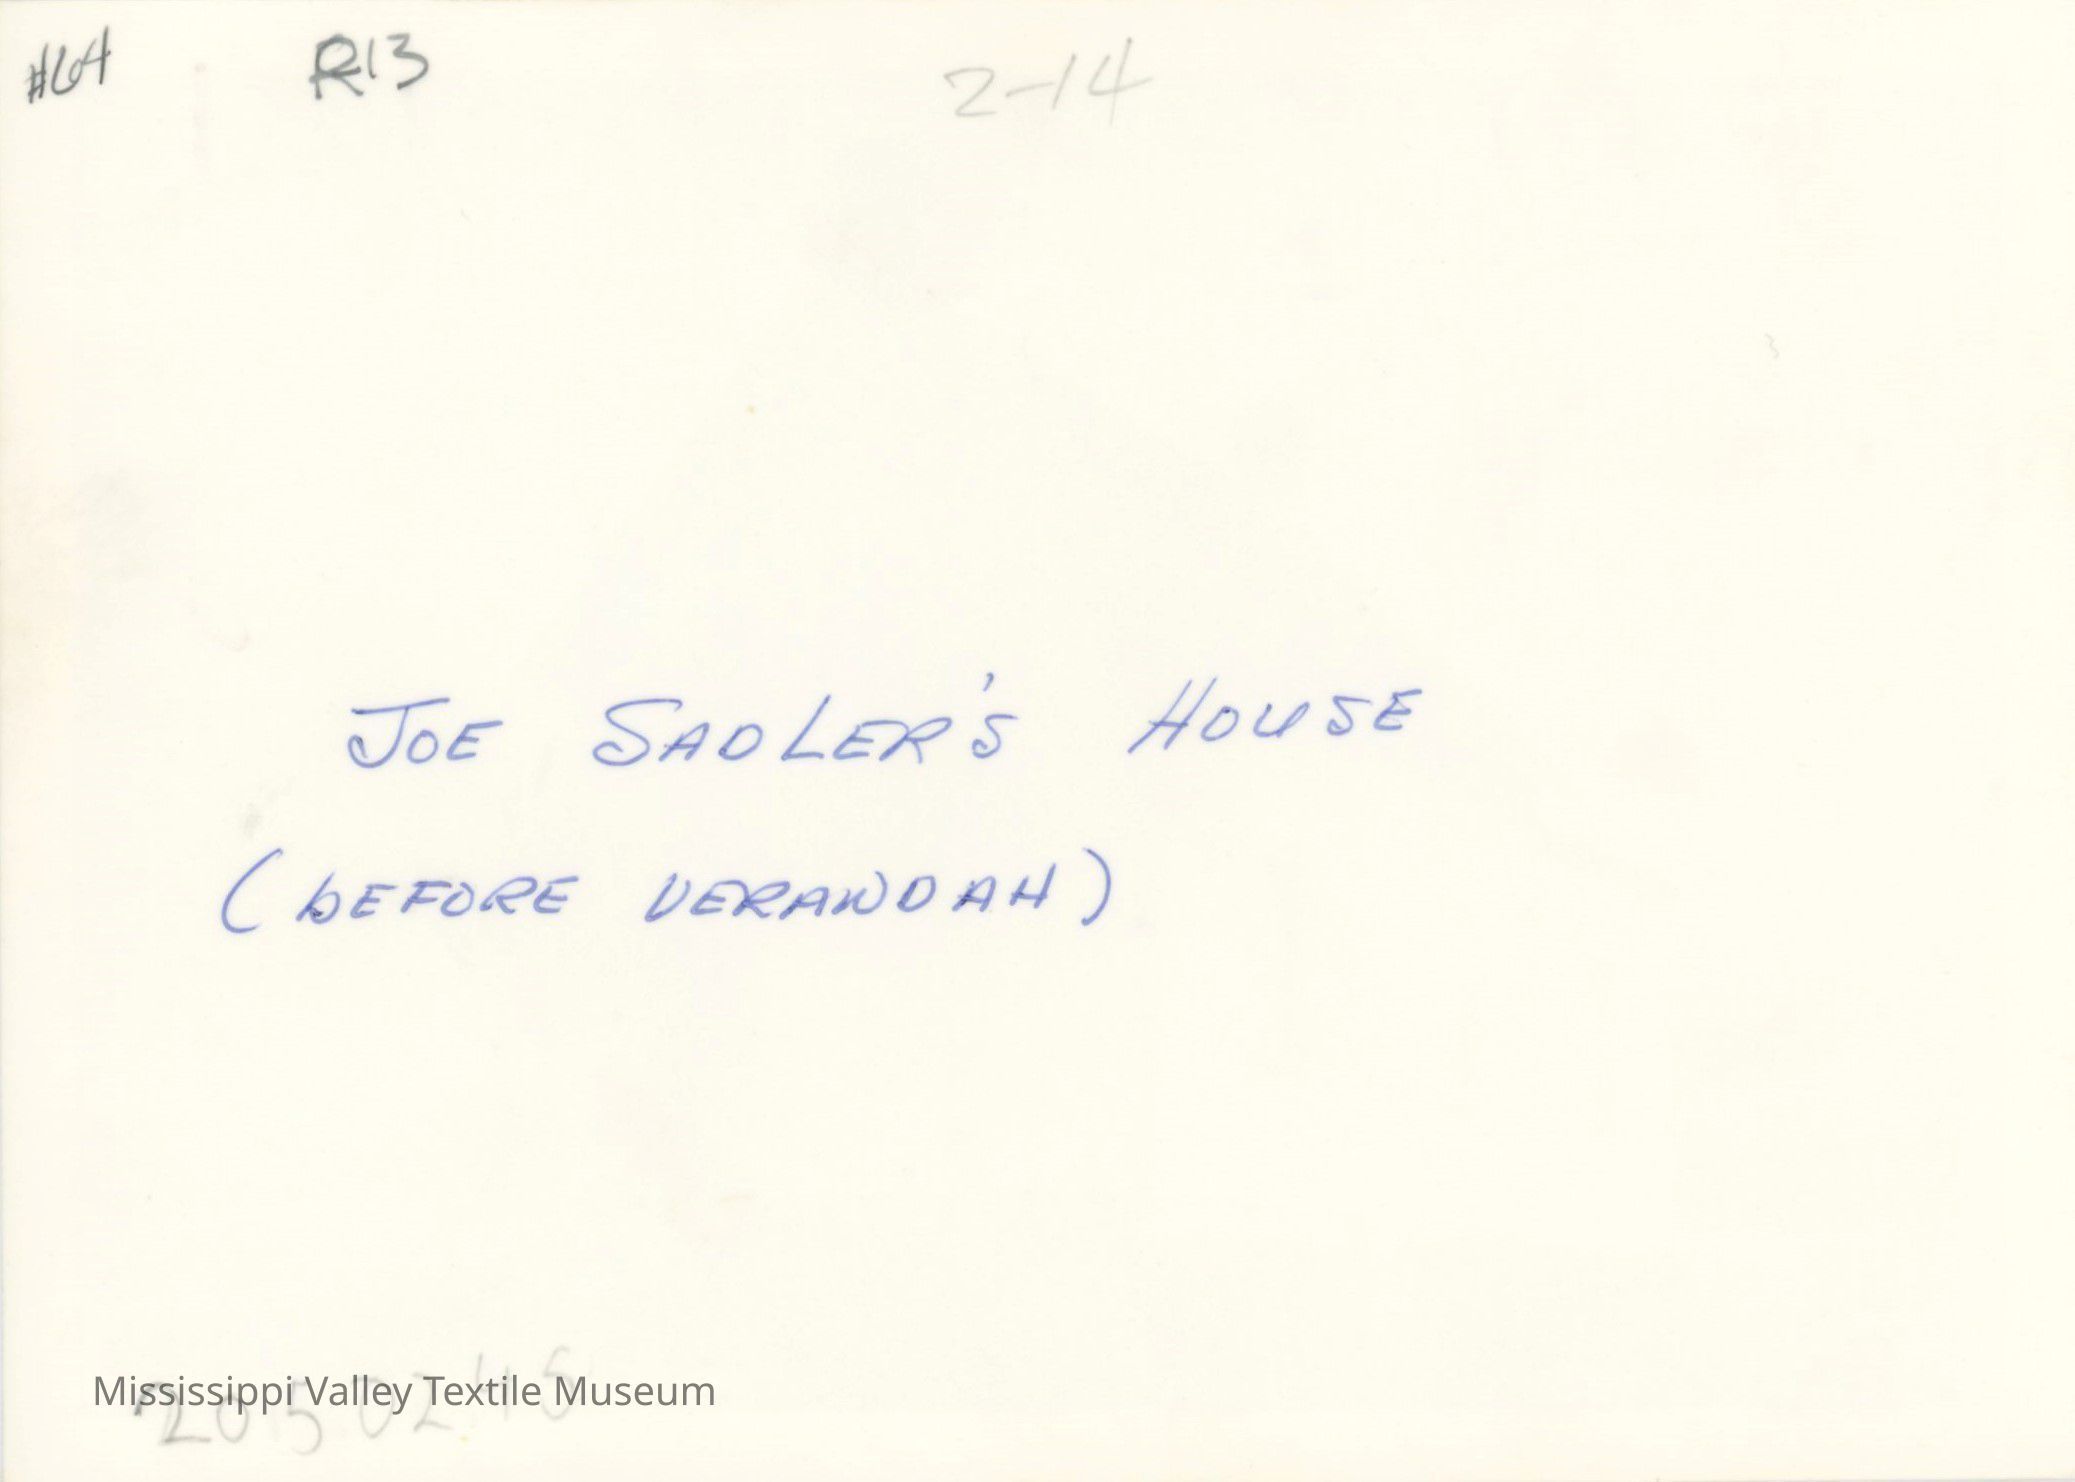 #64 R13 2-14
JOE SADLER'S HOUSE
(BEFORE VERANDAH)
Mississippi Valley Textile Museum